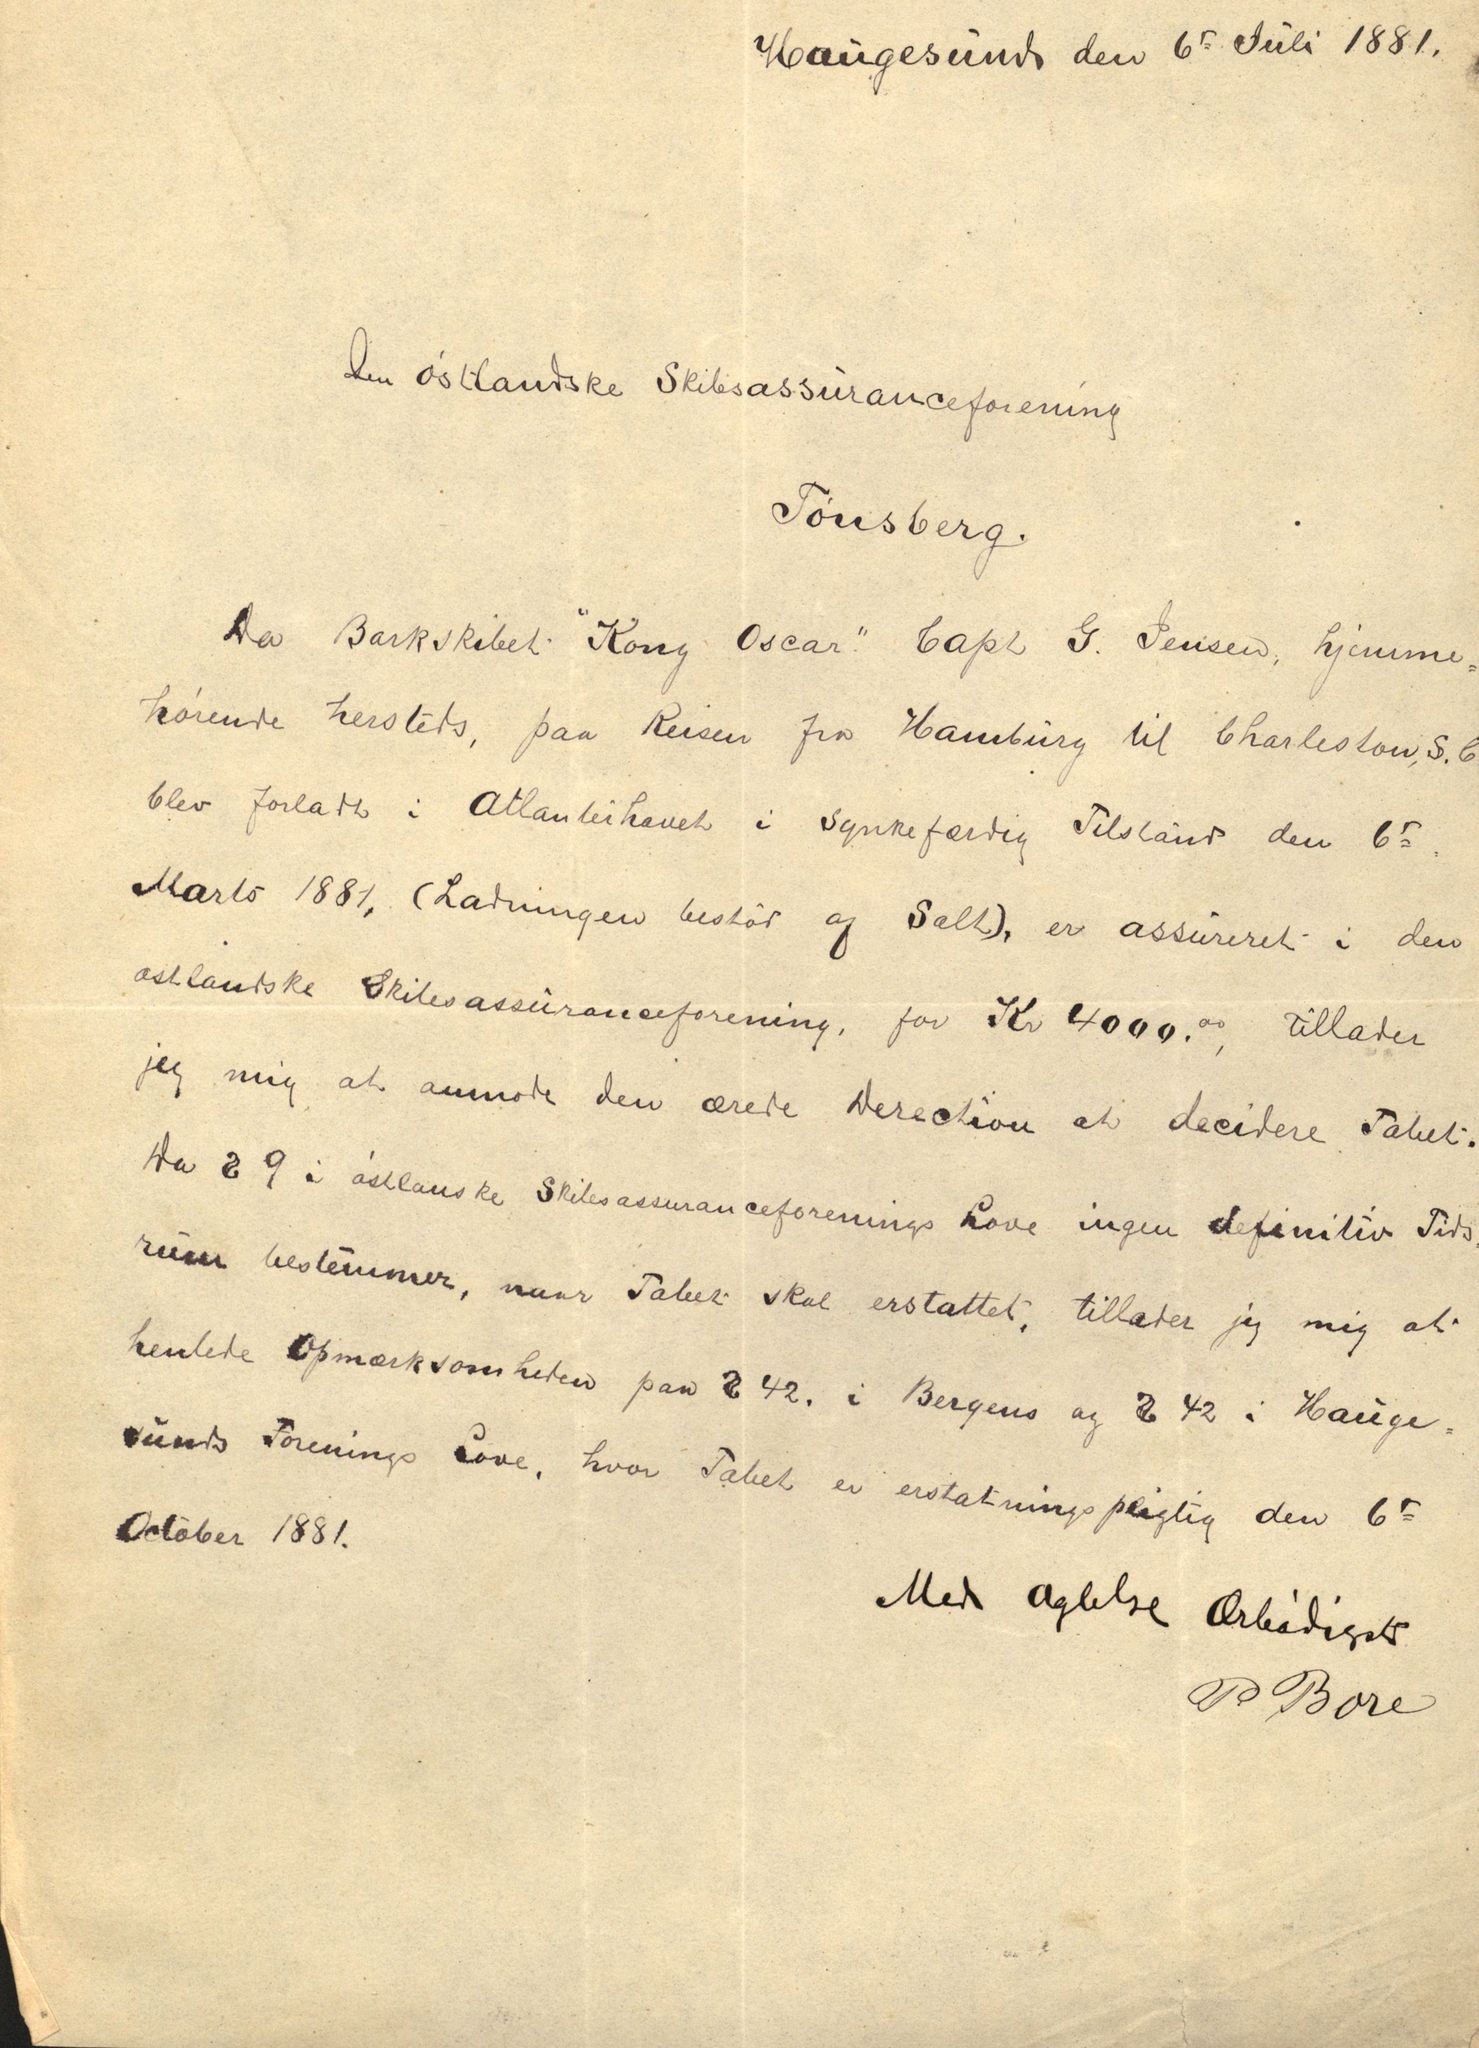 Haugesund den 6te Juli 1881.
Den østlandske Skibsassuranceforening
Tønsberg.
Da Barkskibet "Kong Oscar" Capt G. Jensen, hjemme=
hørende hersteds, paa Reisen fra Hamburg til Charleston, S. C
blev forladt i Atlanterhavet i synkefærdig Tilstand den 6te
Marts 1881, (Ladningen bestod af Salt), er assureret i den
østlandske Skibsassuranceforening, for Kr 4000.00, tillader
jeg mig at anmode den ærede Derection at decidere Tabet.
Da § 9 i østlanske Skibsassuranceforenings Love ingen definitiv Tids=
rum bestemmer, naar Tabet skal erstattet, tillader jeg mig at
henlede Opmærksomheden paa § 42. i Bergens og § 42 i Hauge=
sunds Forenings Love, hvor Tabet er erstatningspligtig den 6te
October 1881.
Med Agtelse Ærbødigst
P Bore